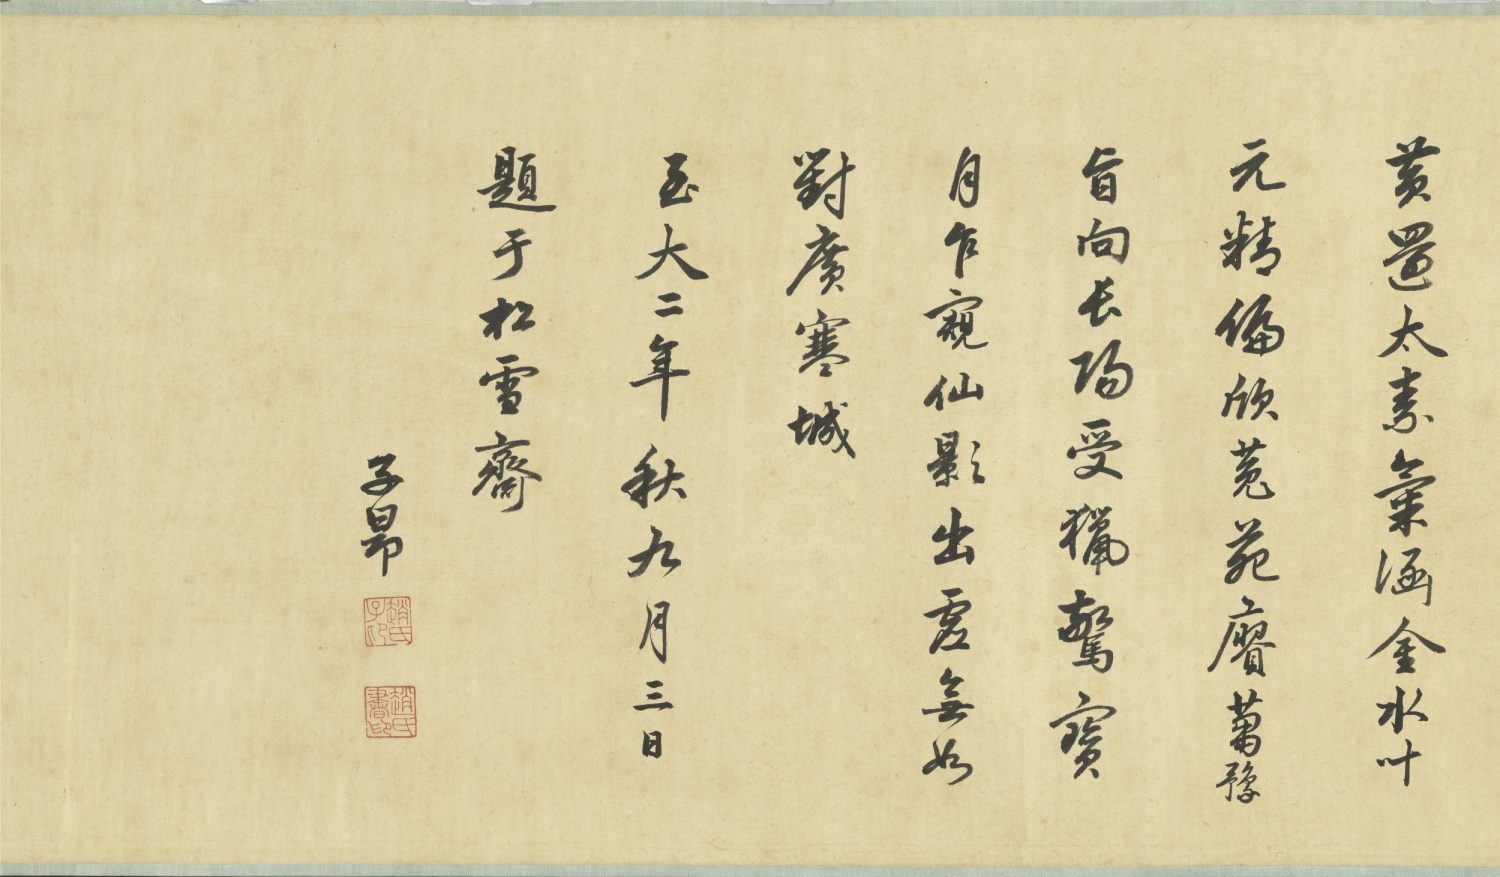 黃太素氣涵金水叶
元精偏欣菟苑賡豫
肯向長陽受獵驚寶
月乍窺仙影出虛無如
對廣寒城
至大二年秋九月三日
題于松雪齋
子昂
趙氏子昂
趙氏書印